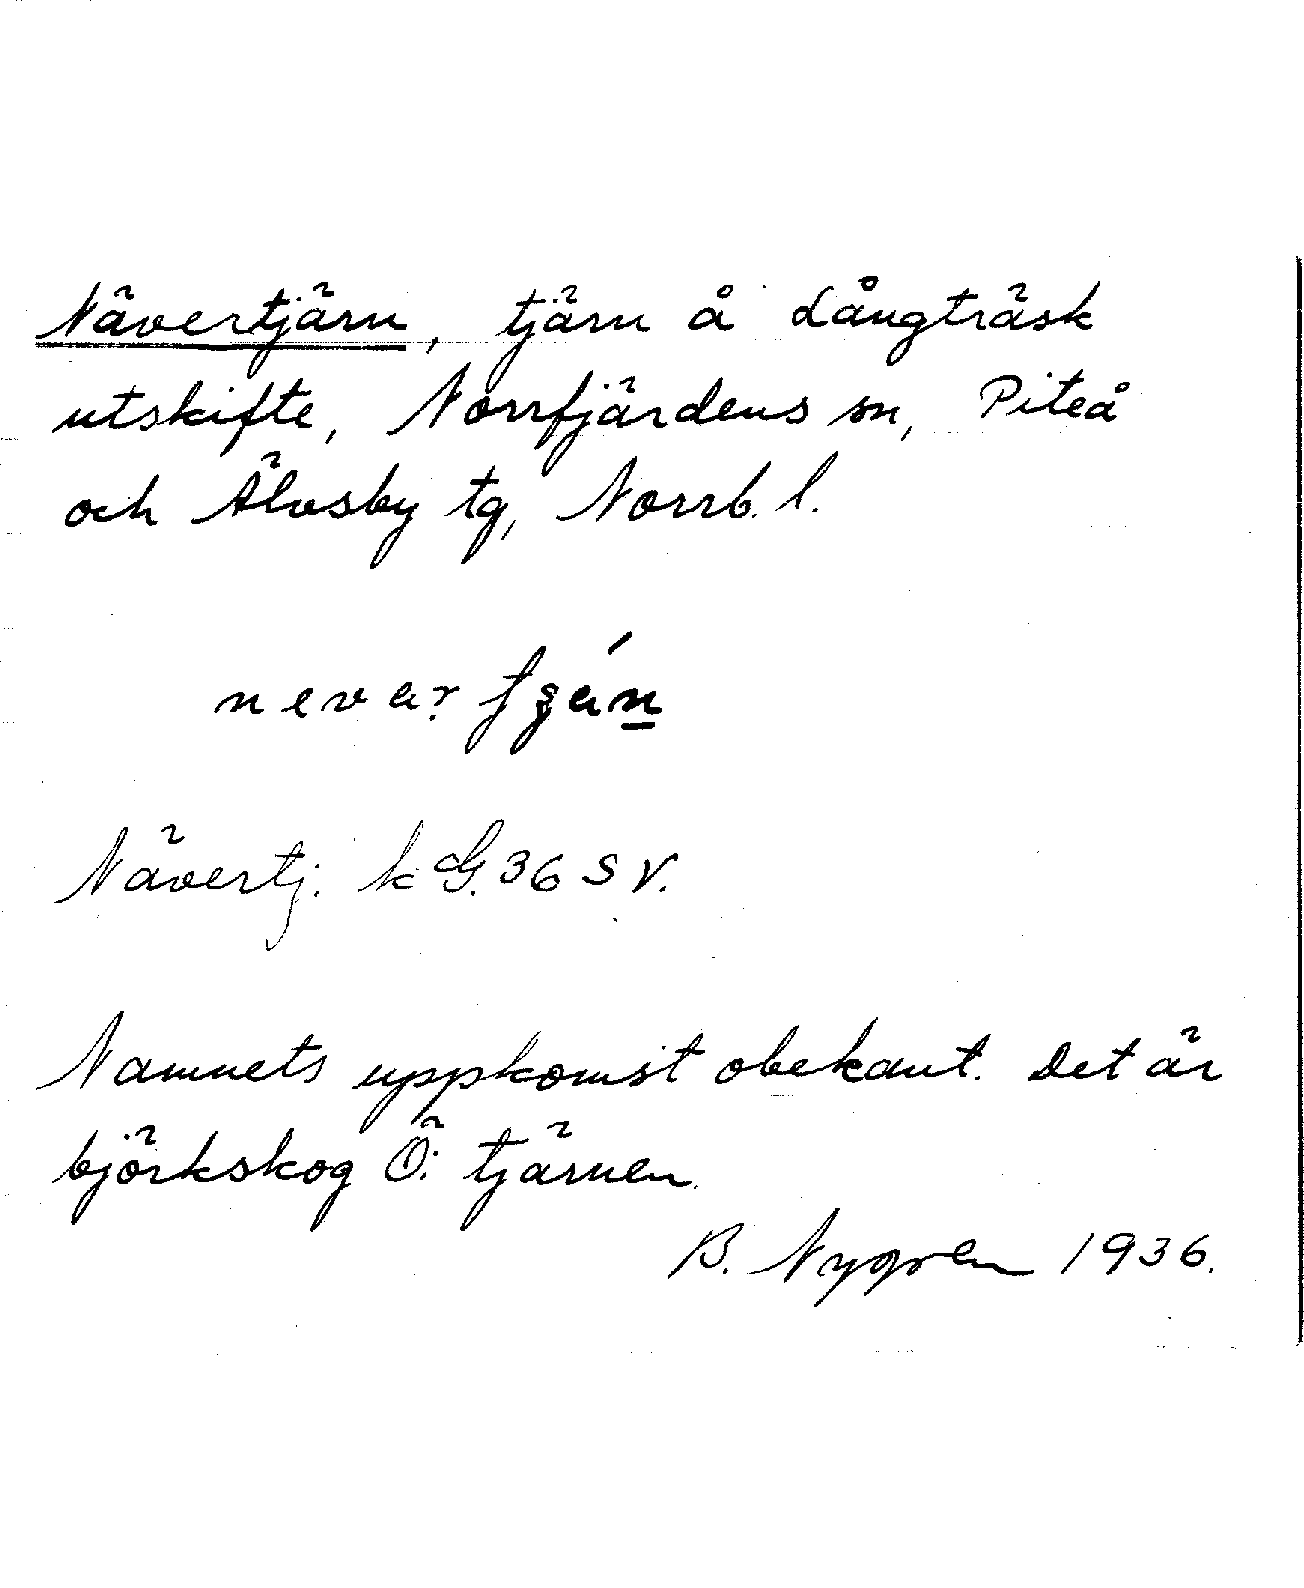 Nävertjärn, tjärn å Långträsk
utskifte, Norrfjärdens sn, Piteå
och Älvsby tg, Norrb. l.
Nävertj. k G. 36 S V.
Namnets uppkomst obekant. Det är
björkskog Ö: tjärnen.
B. Nygren 1936.